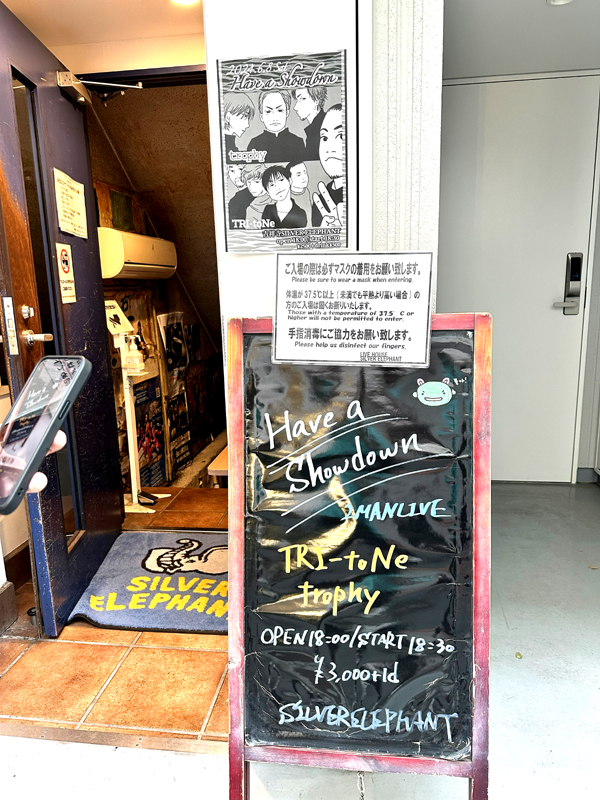 Have a Showdown
trophy
TRI-toNe
吉祥寺SILVER ELEPHANT
open18:00/start18:30
ご入場の際は必ずマスクの着用をお願い致します。
Please be sure to wear a mask when entering.
体温が37.5℃以上(未満でも平熱より高い場合)の
方のご入場は固くお断りいたします。
Those with a temperature of 37.5 C or
higher will not be permitted to enter.
手指消毒にご協力をお願い致します。
Please help us disinfect our fingers.
LIVE HOUSE
SILVER ELEPHANT
Have a
Showdown
2MANLIVE
TRI-toNe
trophy
OPEN18:00/START18:30
¥3,000+1d
SILVERELEPHANT
SILVER
ELEPHAN